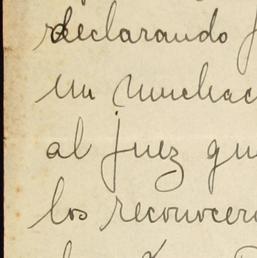 declarando
un muchac
al juez qu
los reconocer